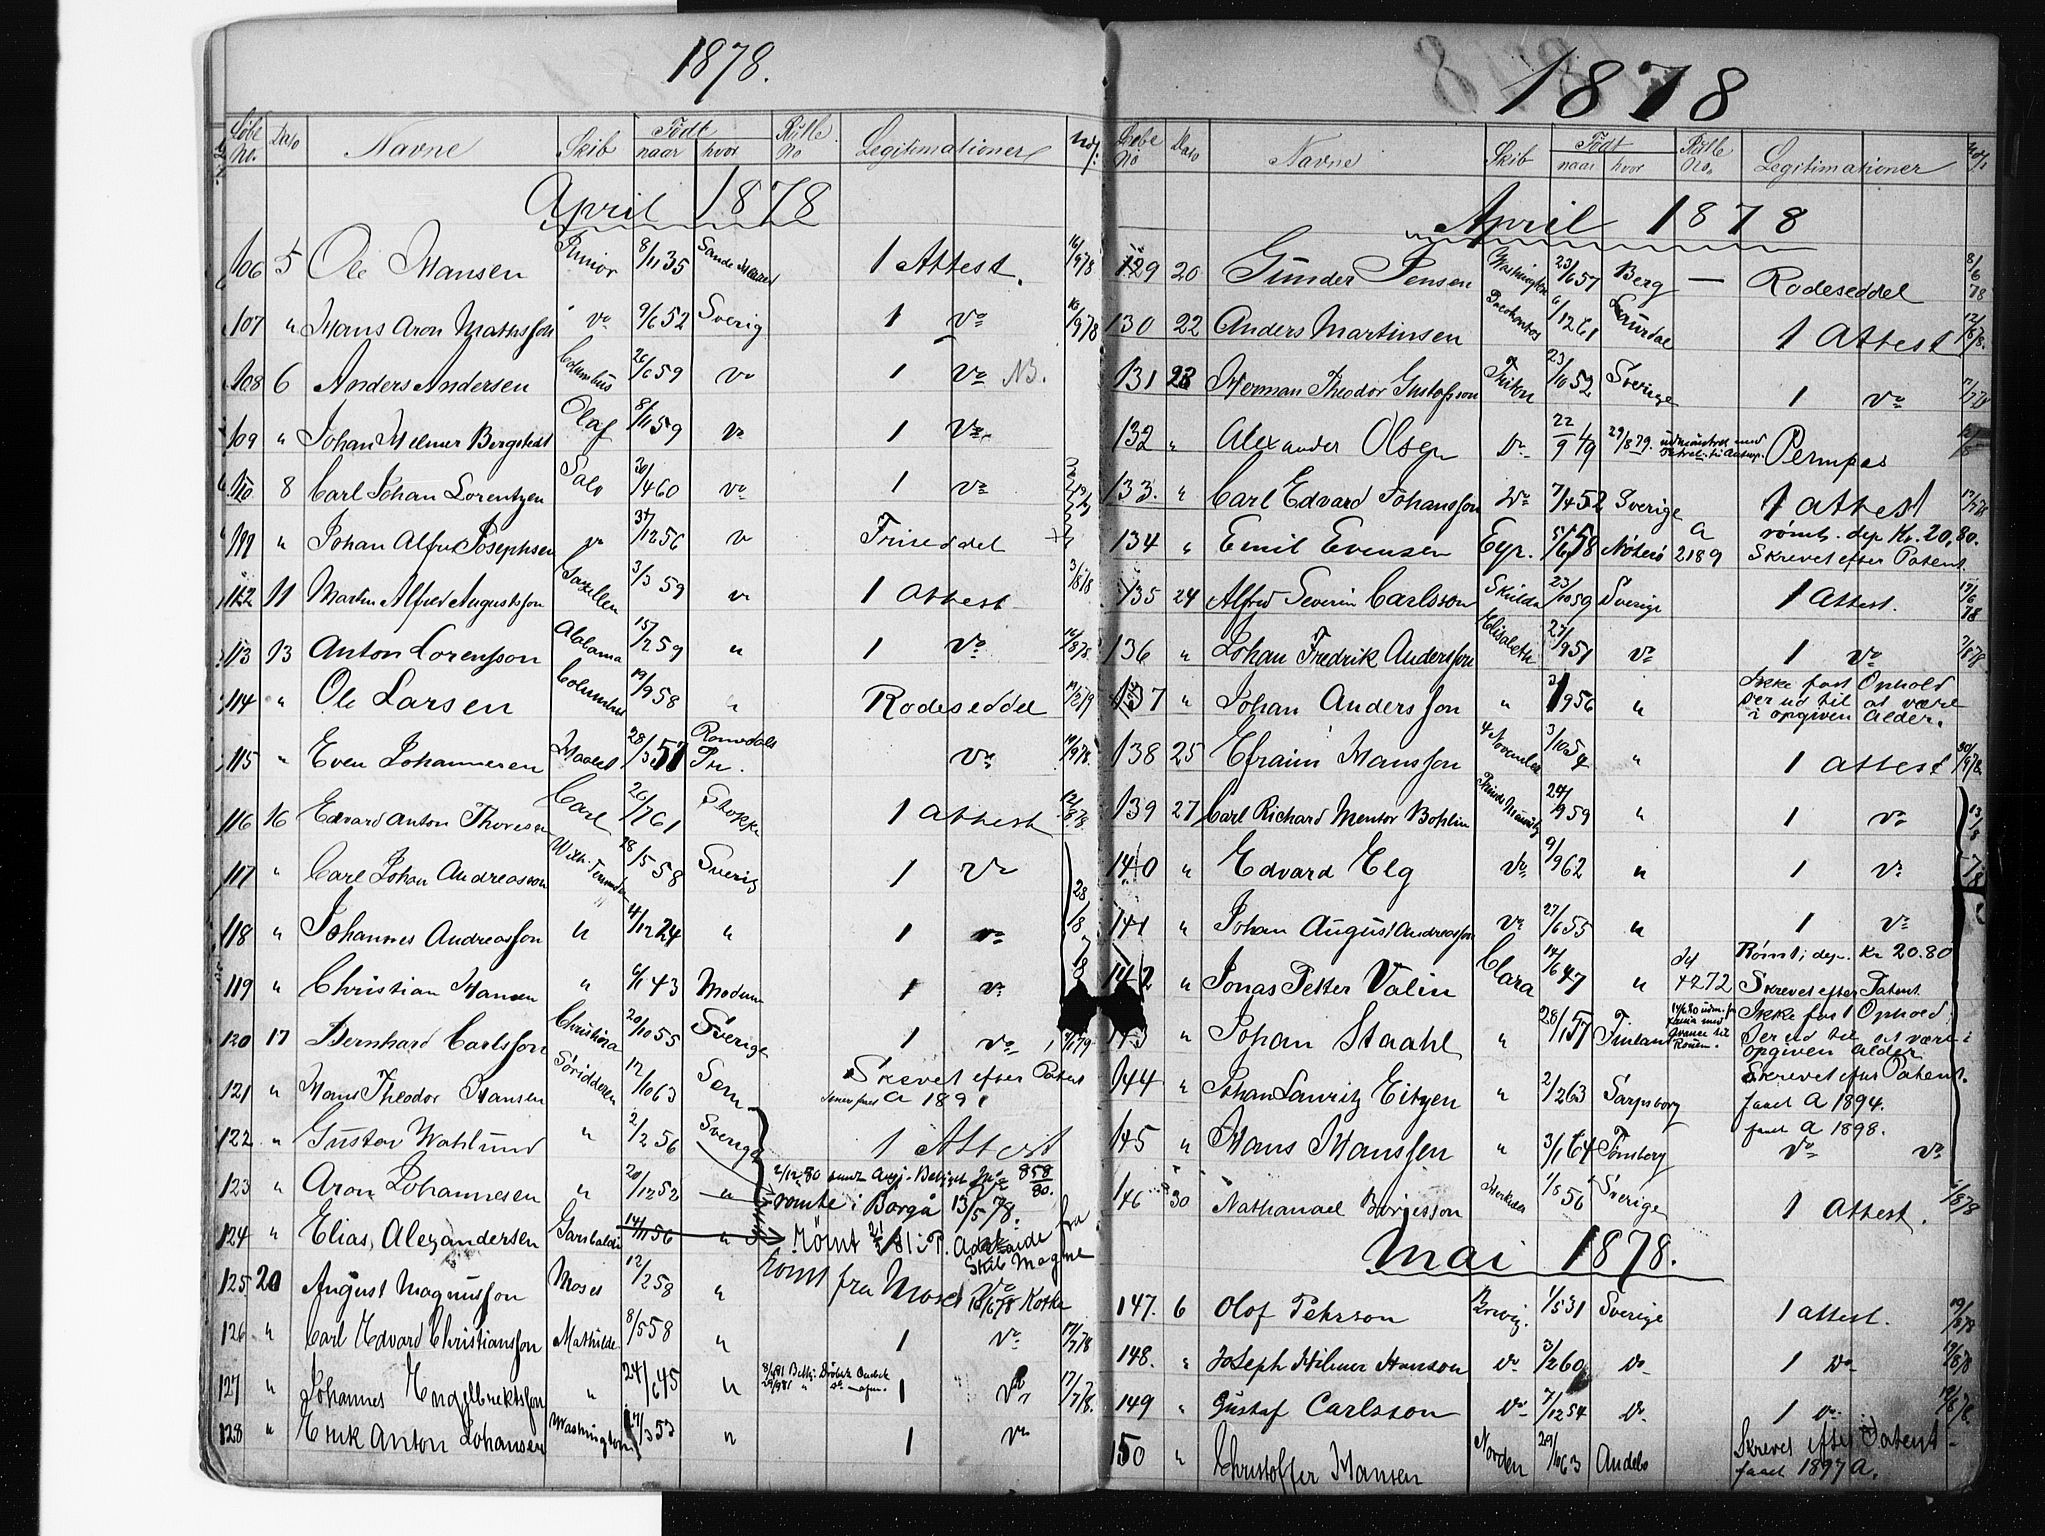 1878.
Løbe No. Dato Navne Skib Født naar hvor Rulle No Legitimationer
April 1878
106 5 Ole Hansen Junior 8/11 35 Sande 1 Attest. 16/9 78
107 " Hans Aron Mathisson do 9/6 52 Sverig 1 do
108 6 Anders Andersen Columbus 26/6 59 do 1 do NB.
109 " Johan Hilmer Bergstedt Olaf 8/11 59 do 1 do
110 8 Carl Johan Lorentzen Salo 26/4 60 do 1 do
111 " Johan Alfred Josephsen do 31/12 56 do Friseddel
112 11 Martin Alfred Augustsson 3/3 59 do 1 Attest 3/8 78
113 13 Anton Lorensson Alabama 15/2 59 " 1 do 16/8 78
114 " Ole Larsen Columbus 19/9 58 " Rodeseddel
115 " Even Johannesen Haabet 28/3 57 Romsdals Do 19/9 78
116 16 Edvard Anton Thoresen Carl 26/7 61 Stokke 1 Attest 12/8 78
117 " Carl Johan Andreasson 28/5 58 Sverig 1 do
118 " Johannes Andreasson " 4/12 24 " 1 do 28/8 78
119 " Christian Hansen " 6/1 43 Modum 1 do
120 17 Bernhard Carlsson Christina 20/10 55 Sverige 1 do
121 " Hans Theodor Hansen Søridderen 12/10 63 Sem Skrevet efter Patent A 1891
122 " Gustav Wahlund " 2/2 56 Sverige 1 Attest
123 " Aron Johannesen " 20/12 52 " 2/12 80 858/80.
rømte i Borgå 13/5 78.
124 " Elias Alexandersen Garibaldi 14/11 56 " Rømt 81 i P. Adelaide fra Skib Magne
125 20 August Magnusson Moses 12/2 58 " Rømt fra Moses 10/6 78 Kotka
126 " Carl Edvard Christiansson Mathilde 8/5 58 " 1 do 17/7 78
127 " Johannes Engelbrektsson " 24/6 45 " 1 do 17/7 78.
128 " Erik Anton Johansen Washington 17/3 53 " 1 do
1878
Løbe No Dato Navne Skib Født naar hvor Rulle No. Legitimationer
April 1878
129 20 Gunder Jensen Washington 23/6 57 Berg — Rodeseddel 8/6 78
130 22 Anders Martinsen 6/12 61 Laurdal 1 Attest 12/8 78.
131 23 Herman Theodor Gustafsson Triton 23/10 52 Sverige 1 do
132 " Alexander Olsen Do 22/9 49 29/8 79. udmønstret med Permpas
133. " Carl Edvard Johansson Do 7/4 52 Sverige 1 attest
134 " Emil Evensen Eyr. 5/6 58 Nøterø A 2189 rømt. dep Kr. 20,80. Skrevet efter Patent.
135 24 Alfred Severin Carlsson Skulda 23/10 59 Sverige 1 Attest. 19/6 78
136 " Johan Fredrik Andersson Elisabeth 27/9 51 do 1 do 7/8 78
137 " Johan Andersson " 9 56 " Ikke fast Ophold Ser ud til at være i opgiven Alder.
138 25 Efraim Hansson 4 November 3/10 54 " 1 attest 30/9 78
139 27 Carl Richard Mentor Bohlin Prinds Mauritz 24/9 59 " 1 do
140 " Edvard Elg do 9/9 62 " 1 do 13/8 78
141 " Johan August Andreasson do 27/6 55 " 1 do
142 " Jonas Petter Valin Clara 14/6 47 " 4272 Rømt; dep. Kr 20.80 Skrevet efter Patent
143 " Johan Staahl " 28/1 57 Finland Ikke fast Ophold. Ser ud til at være i opgiven Alder
144 " Johan Lauritz Eitzen " 2/2 63 Sarpsborg Skrevet efter Patent. faaet A 1894.
145 " Hans Hanssen " 3/1 64 Tønsberg faaet A 1898. do do
146 30 Nathanael Børjesson 1/8 56 Sverige 1 Attest. 1/8 78
Mai 1878.
147. 6 Olof Pehrson Brevig. 1/5 31 Sverige 1 attest. 19/8 78
148. " Joseph Hilmer Hanson do 3/2 60 do 1 do 19/8 78
149 " Gustaf Carlsson do 7/12 54 do 1 do 19/8 78.
150 " Christoffer Hansen Norden 29/10 63 Andebo Skrevet efter Patent faaet 1897 A.